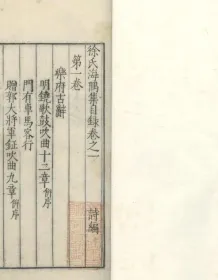 徐氏海隅集目錄卷之一
詩編
第一卷
樂府古辭
明鐃歌鼓吹曲十二章 併序
門有車馬客行
贈郭大將軍鉦吹曲九章 併序